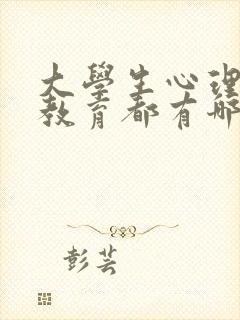 大學生心理
教育都有哪
彭芸